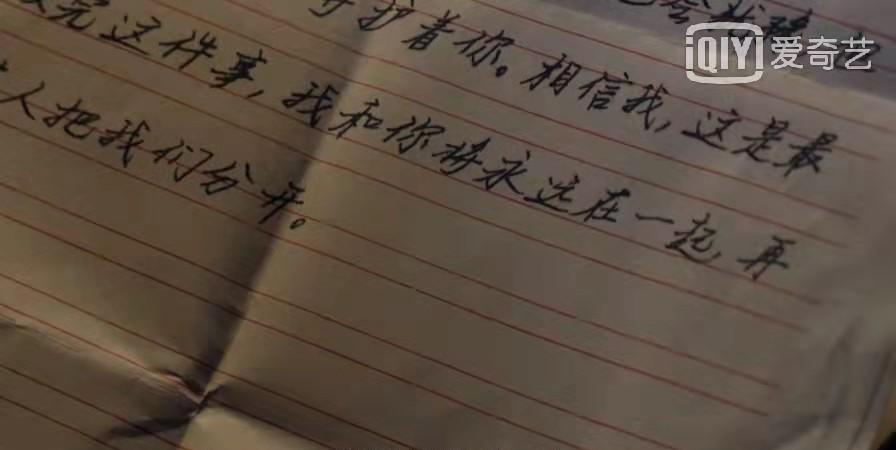 QIY 爱奇艺
守护着你。相信我,这是最
完这件事,我和你将永远在一起,再
人把我们分开。